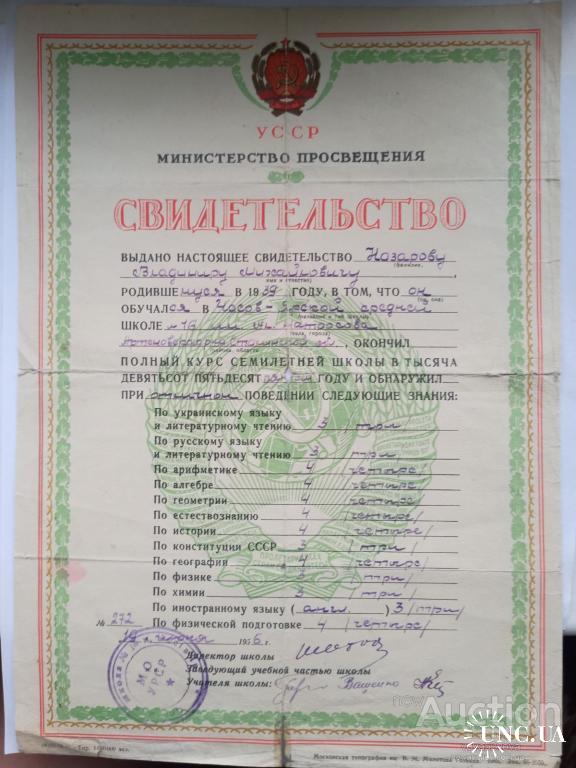 УССР
МИНИСТЕРСТВО ПРОСВЕЩЕНИЯ
СВИДЕТЕЛЬСТВО
ВЫДАНО НАСТОЯЩЕЕ СВИДЕТЕЛЬСТВО Назарову
(фамилия,
Владимиру Михайловичу ,
имя и отчество)
РОДИВШЕМУСЯ В 1939 ГОДУ, В ТОМ, ЧТО он
(он, она)
ОБУЧАЛСЯ В Часов-Ярской средней
(название и тип школы)
ШКОЛЕ №16 им
(села, города)
Сталинской обл. ОКОНЧИЛ
ПОЛНЫЙ КУРС СЕМИЛЕТНЕЙ ШКОЛЫ В ТЫСЯЧА
ДЕВЯТЬСОТ ПЯТЬДЕСЯТ ГОДУ И ОБНАРУЖИЛ
ПРИ отличном ПОВЕДЕНИИ СЛЕДУЮЩИЕ ЗНАНИЯ:
По украинскому языку
и литературному чтению 3 /три/
По русскому языку
и литературному чтению 3 /три/
По арифметике 4 /четыре/
По алгебре 4 /четыре/
По геометрии 4 /четыре/
По естествознанию 4 /четыре/
По истории 4 /четыре/
По конституции СССР 3 /три/
По географии 4 /четыре/
По физике 3 /три/
По химии 3 /три/
По иностранному языку (англ.) 3 /три/
По физической подготовке 4 /четыре/
№ 272
1956 г.
Директор школы
Заведующий учебной частью школы
Учителя школы: Ващенко
МО
УРСР
Московская типография им. В. М. Молотова
newAuction
UNC.UA